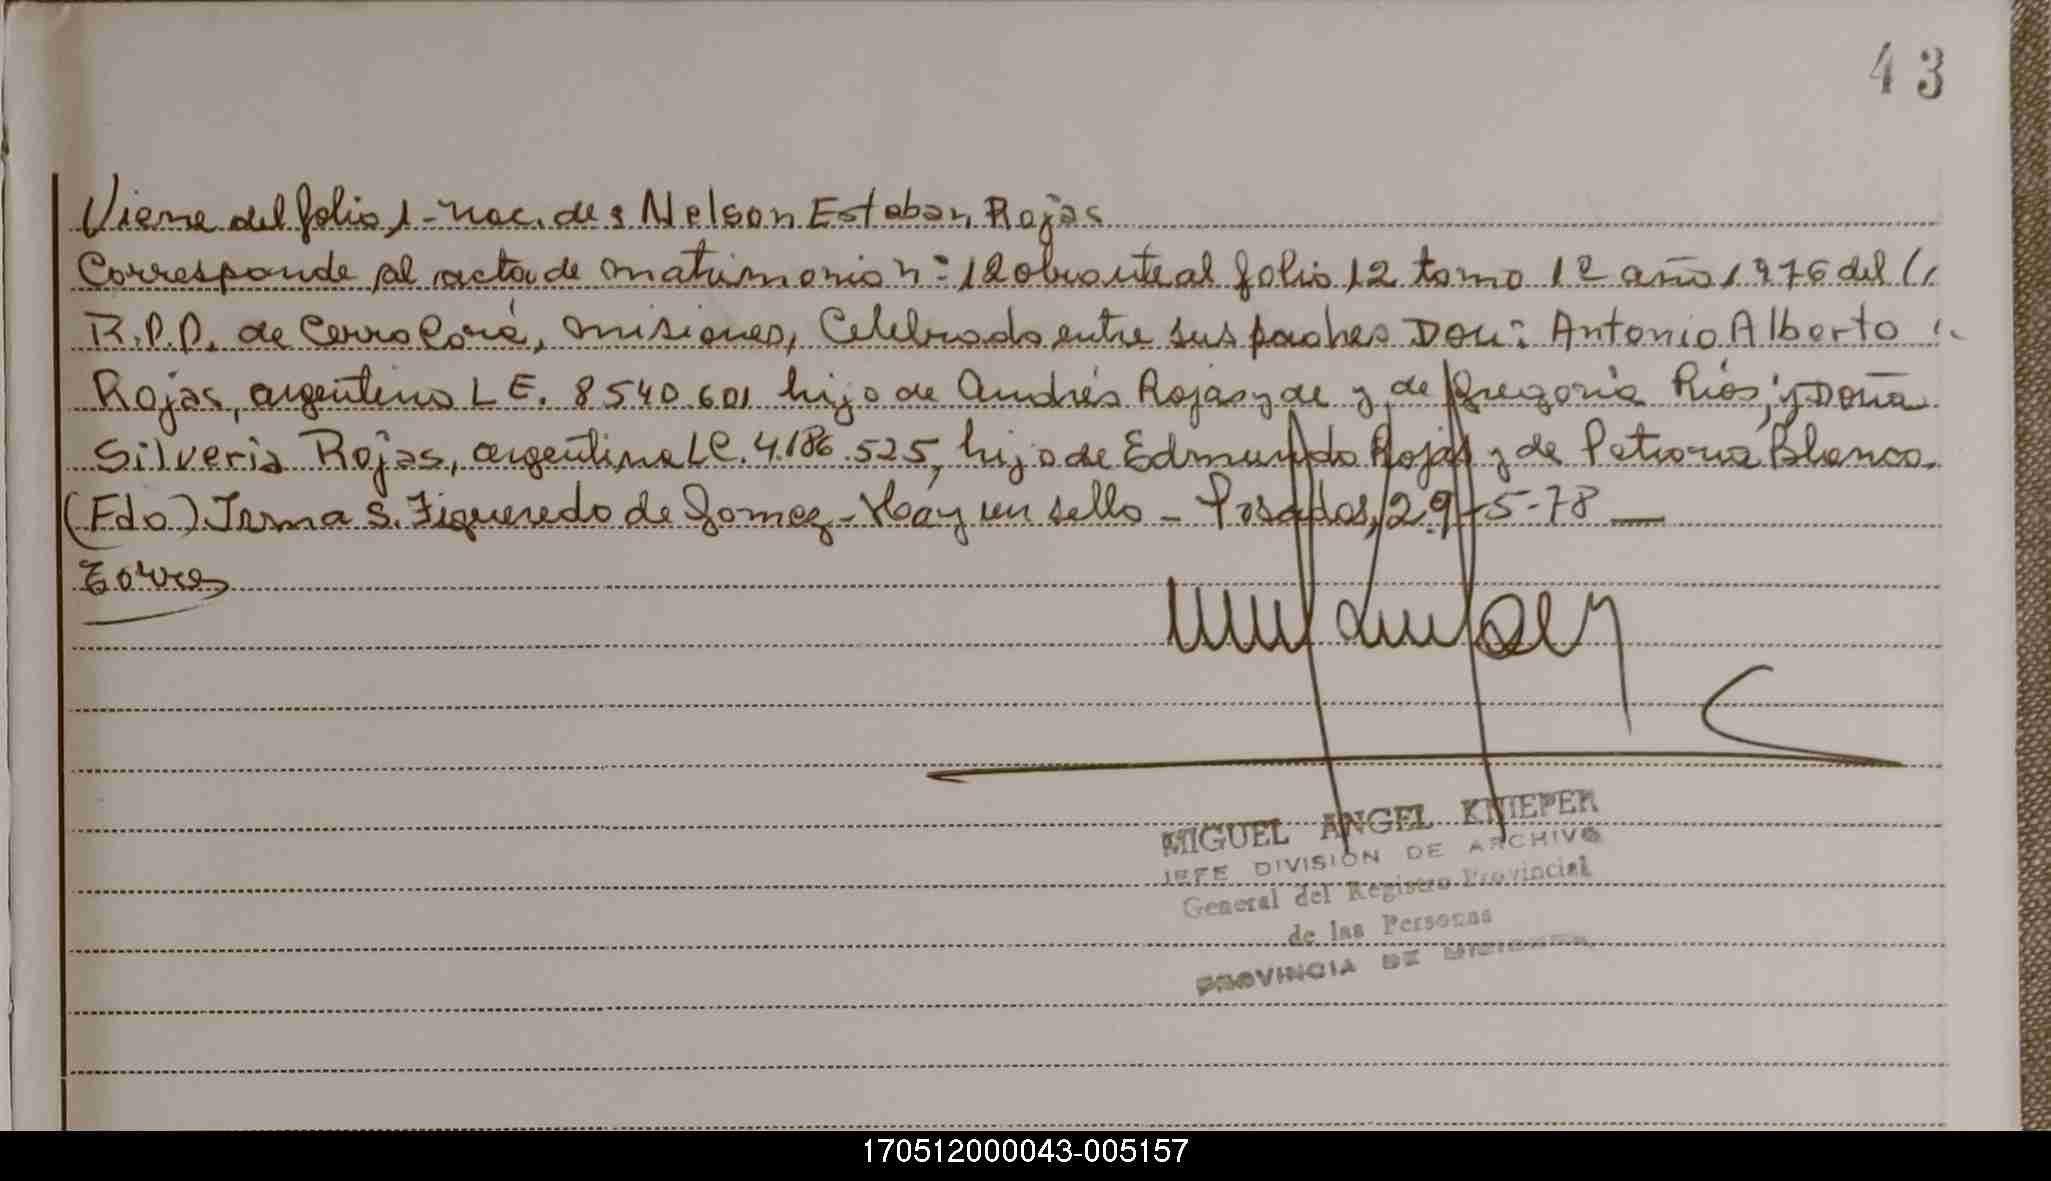 43
Viene del folio 1 - Nac. de: Nelson Esteban Rojas
Corresponde al acta de matrimonio n: 12 obrante al folio 12 tomo 1º año 1976 del
R.P.P. de Cerro Corá, Misiones, Celebrado entre sus padres Don: Antonio Alberto
Rojas, argentino L E. 8540.601 hijo de Andrés Rojas y de y de Gregoria Ríos, y Doña
Silveria Rojas, argentina LC. 4.186.525, hijo de Edmundo Rojas y de Petrona Blanco.
(Fdo) Irma S. Figueredo de Gomez - Hay un sello - Posadas, 29-5-78
Torres
MIGUEL ANGEL KNIEPER
JEFE DIVISIÓN DE ARCHIVO
General del Registro Provincial
de las Personas
PROVINCIA DE MISIONES
170512000043-005157